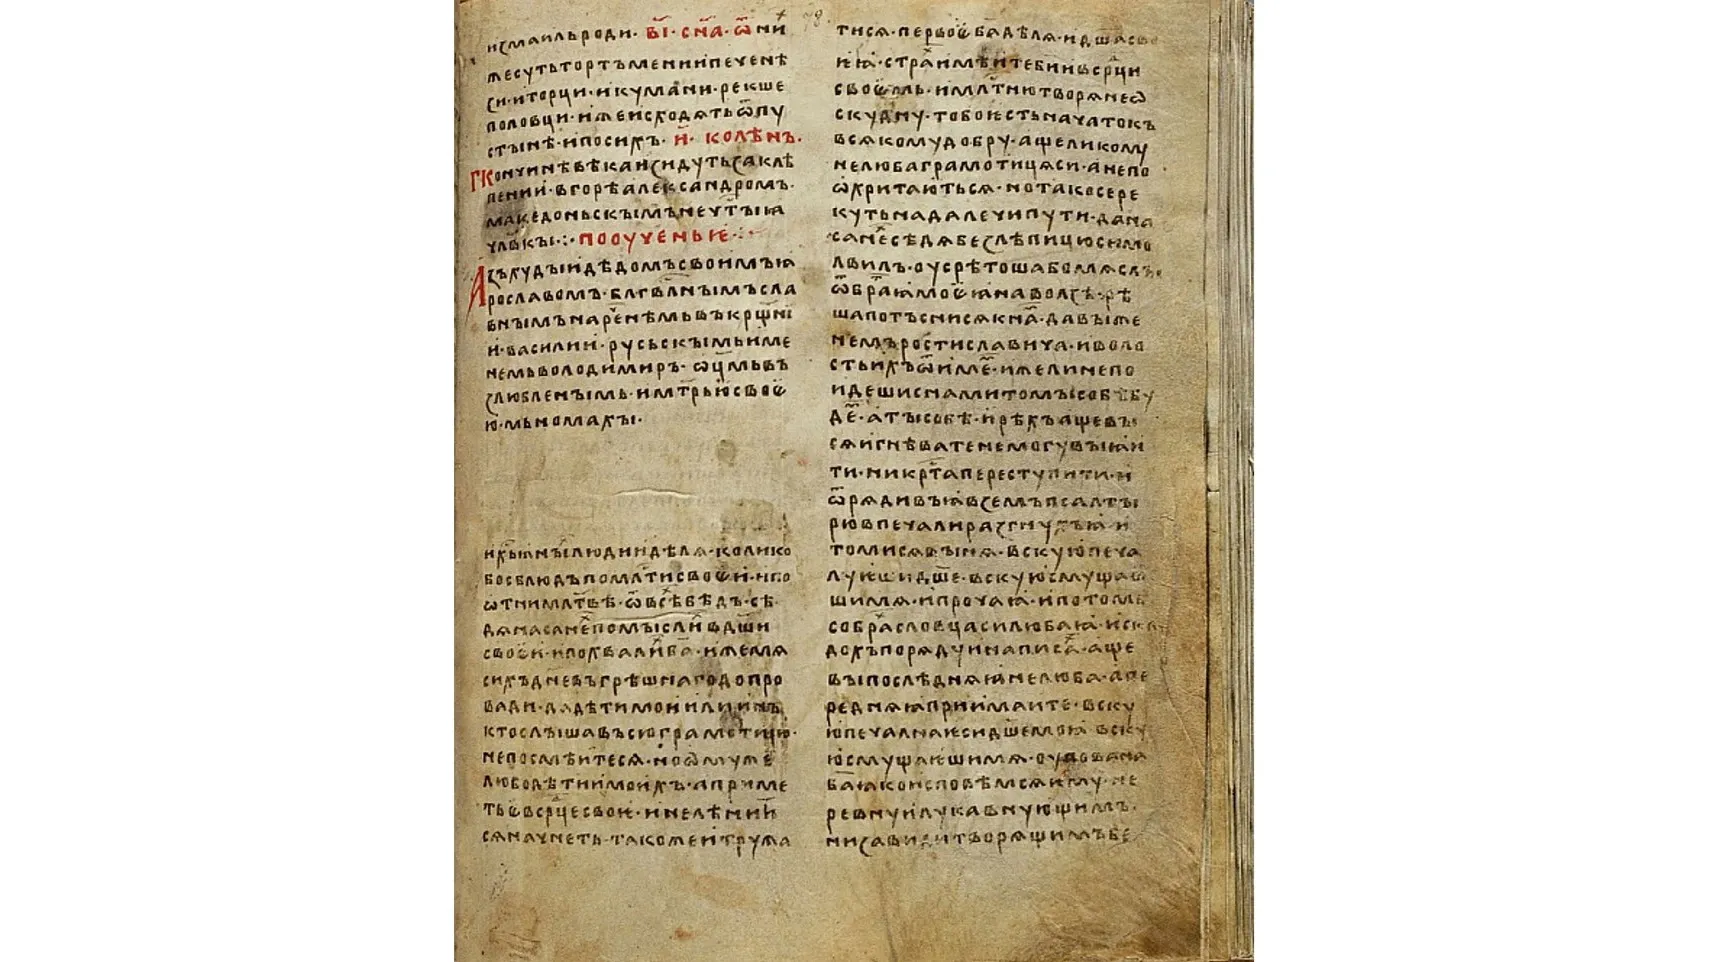 измаильроди· в҃і· сн҃а· ѿни
жесутьтортъменииипеченѣ
зи·иторци·икумани·рекше
половци·ижеисходѧтьѿпу
стынѣ·ипосихъ· и҃· колѣнъ·
кончинѣвѣкаизидутьзаклѣ
пении·вгорѣалександромъ·
македоньскымънечⷭ҇тыꙗ
чл҃вкы·:· пооученьѥ·:·
Азъхудыидѣдомъсвоимъꙗ
рославомъ·блгⷭ҇влнымъсла
внымънаренⷱ҇ѣмьвъкрщⷭ҇ні
и·василии·русьскымьиме
немьволодимиръ·ѿц҃мьвъ
злюбленымь·имт҃рьюсвоѥ
ю·мьномахы·
ихъⷯжны҃людиидѣлѧ·колико
босблюдъпомлⷭ҇тисвоѥи·ипо
ѿтнимлт҃вѣ·ѿвсѣхⷯбѣдъ·сѣ
дѧнасанехⷯпомыслихⷯвдш҃и
своѥи·ипохвалихⷯб҃а·ижемѧ
сихъдневъгрѣшнагодопро
вади·дадѣтимоиилиинъ
ктослышавъсюграмотицю·
непосмѣитесѧ·ноѡмуже
любодѣтиимоихъ·априме
тьѥвсрⷣцесвоѥ·инелѣнит
сѧначнеть·такожеитружа
тисѧ·первоѥб҃адѣлѧ·идш҃асво
ѥꙗ·страⷯимѣитеб҃иивсрⷣци
своѥмь·имлⷭ҇тнютворѧнеѡ
скудну·тобоѥстьначатокъ
всѧкомудобру·ащеликому
нелюбаграмотицѧси·анепо
ѡхритаютьсѧ·нотакосере
куть·надалечипути·дана
санехⷯсѣдѧбезлѣпицюсимо
лвилъ·оусрѣтошабомѧслъ
ѿбраⷮꙗмоѥꙗнаволзѣ·рѣ
шапотъснисѧкна҃·давыже
немъростиславича·иволо
стьихъѿимеⷨ·ижелинепо
идешиснамитомысобѣбу
деⷨ·атысобѣ·ирѣхъащевы
сѧигнѣваютенемогувыꙗи
ти·никрⷭ҇тапереступити·и
ѿрѧдивъꙗвземъпсалты
рювпечалиразгнухъꙗ·и
томисѧвынѧ·вскуюпеча
луѥшидш҃е·вскуюсмущаѥ
шимѧ·ипрочаꙗ·ипотомь
собраⷯсловцасилюбаꙗ·искла
дохъпорѧдуинаписаⷯ·аще
выпослѣднѧꙗнелюба·апе
реднѧꙗприимаите·вску
юпечалнаѥсидш҃емоꙗ·вску
юсмущаѥшимѧ·оуповаина
ба҃ꙗкоисповѣмсѧѥму·не
ревнуилукавнующимъ·
низавидитворѧщимъбе